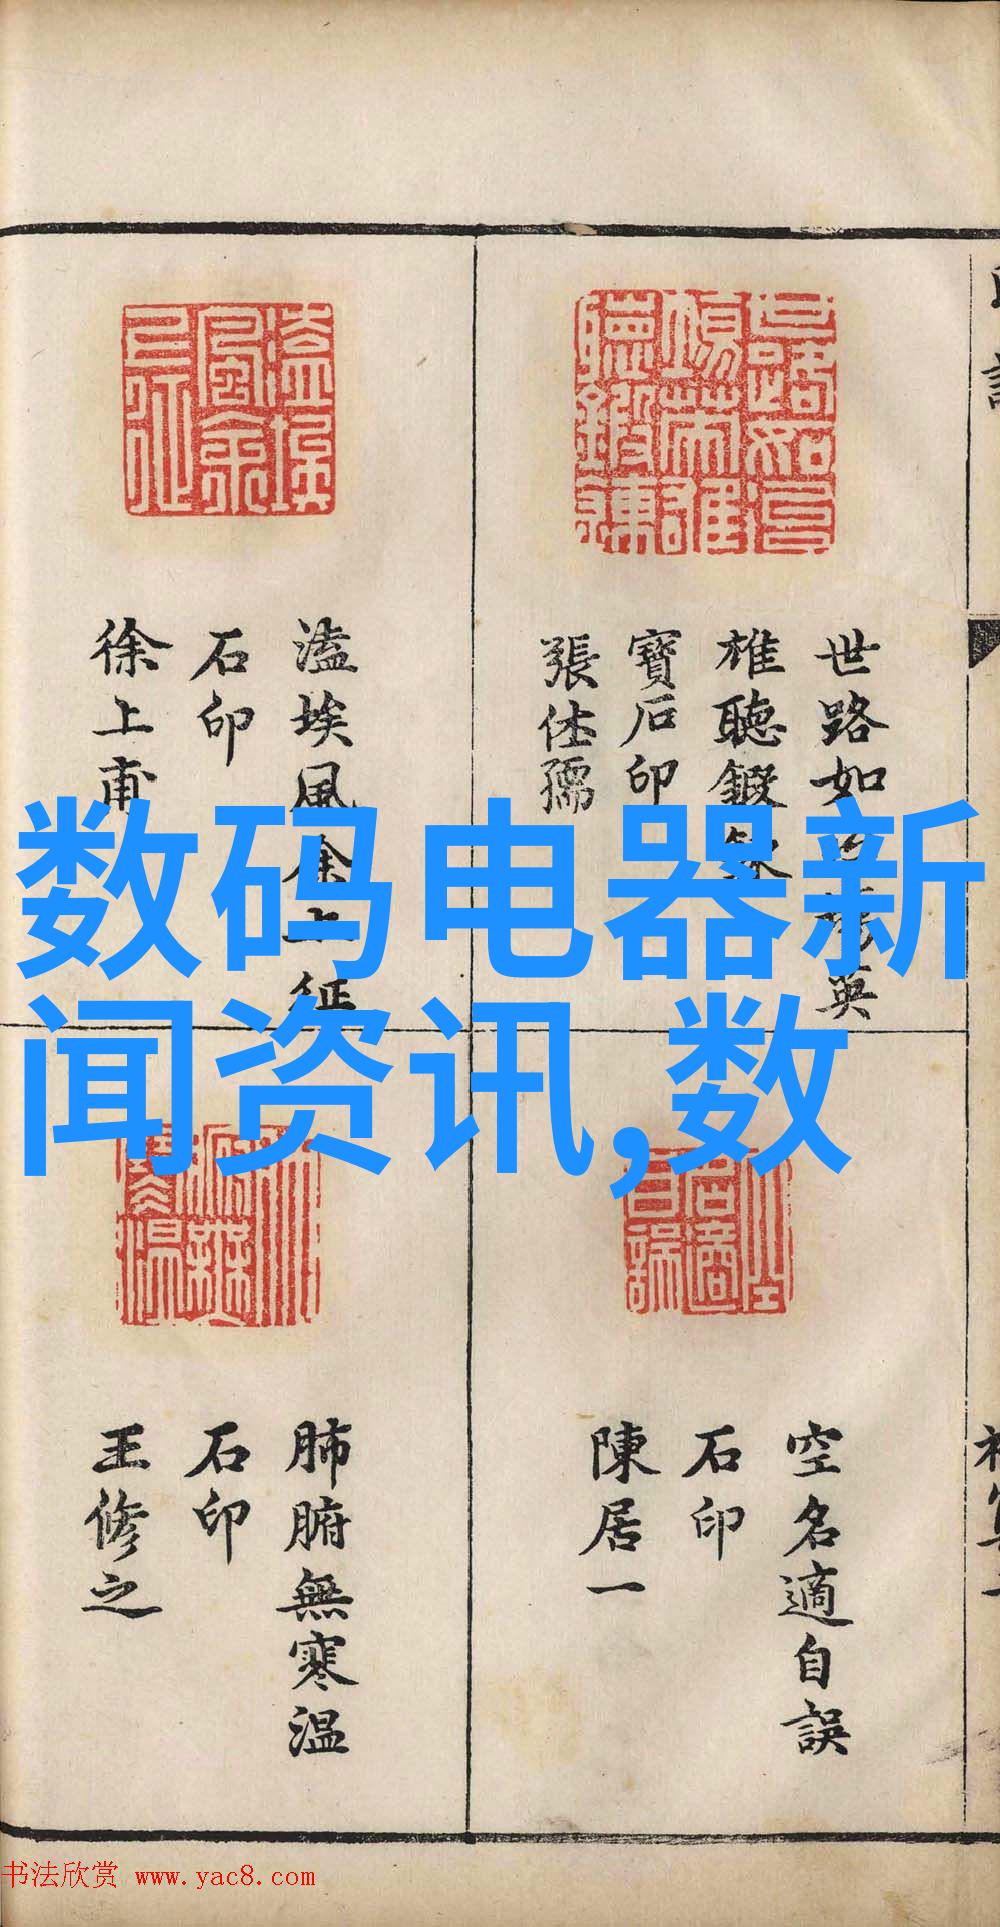 世路如冶場英
雄聽鍜鍊
寶石印
張仕孺
溘埃風余上征
石印
徐上甫
空名適自誤
石印
陳居一
肺腑無寒温
石印
王修之
数码电器新
闻资讯,数
书法欣赏 www.yac8.com